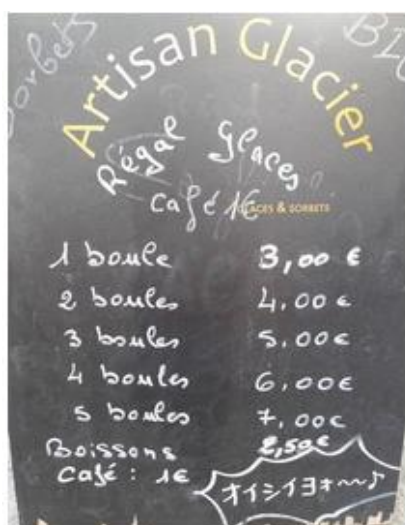 Sorbets
Artisan Glacier
Régal Glaces
Café 1€
GLACES & SORBETS
1 boule 3,00 €
2 boules 4,00€
3 boules 5,00€
4 boules 6,00€
5 boules 7,00€
Boissons 2,50€
Café : 1€
オイシイヨォ〜〜♪